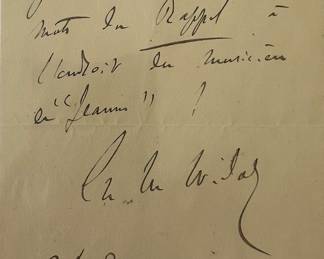 mots du Rappel à
l'endroit du musicien
en "Jeanne" !
Ch. M. Widor